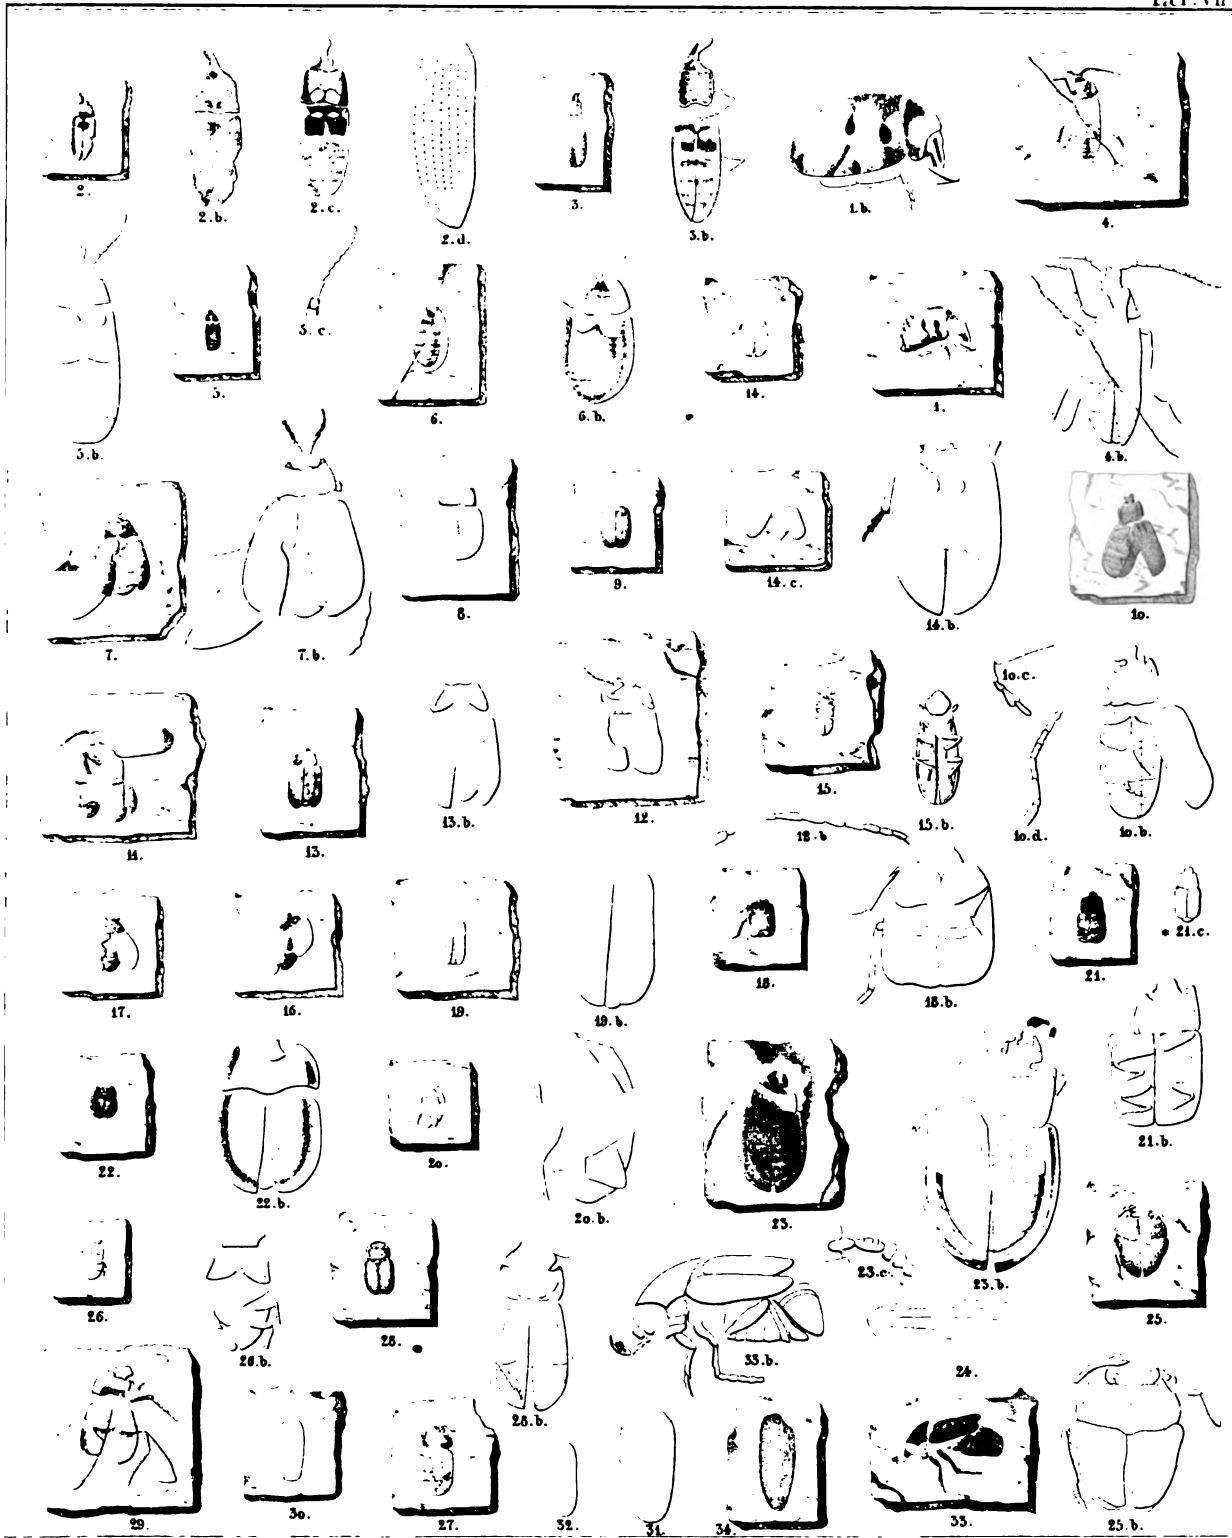 Taf. VII
2. 2.b. 2.c. 2.d. 3. 3.b. 1.b. 4.
5.b. 5. 5.c. 6. 6.b. 14. 1. 4.b.
7. 7.b. 8. 9. 14.c. 14.b. 10.
11. 13. 13.b. 12. 12.b 15. 15.b. 10.c. 10.d. 10.b.
17. 16. 19. 19.b. 18. 18.b. 21. 21.c.
22. 22.b. 20. 20.b. 23. 23.c. 23.b. 21.b.
26. 26.b. 28. 28.b. 33.b. 24. 25.
29. 30. 27. 32. 31. 34. 33. 25.b.